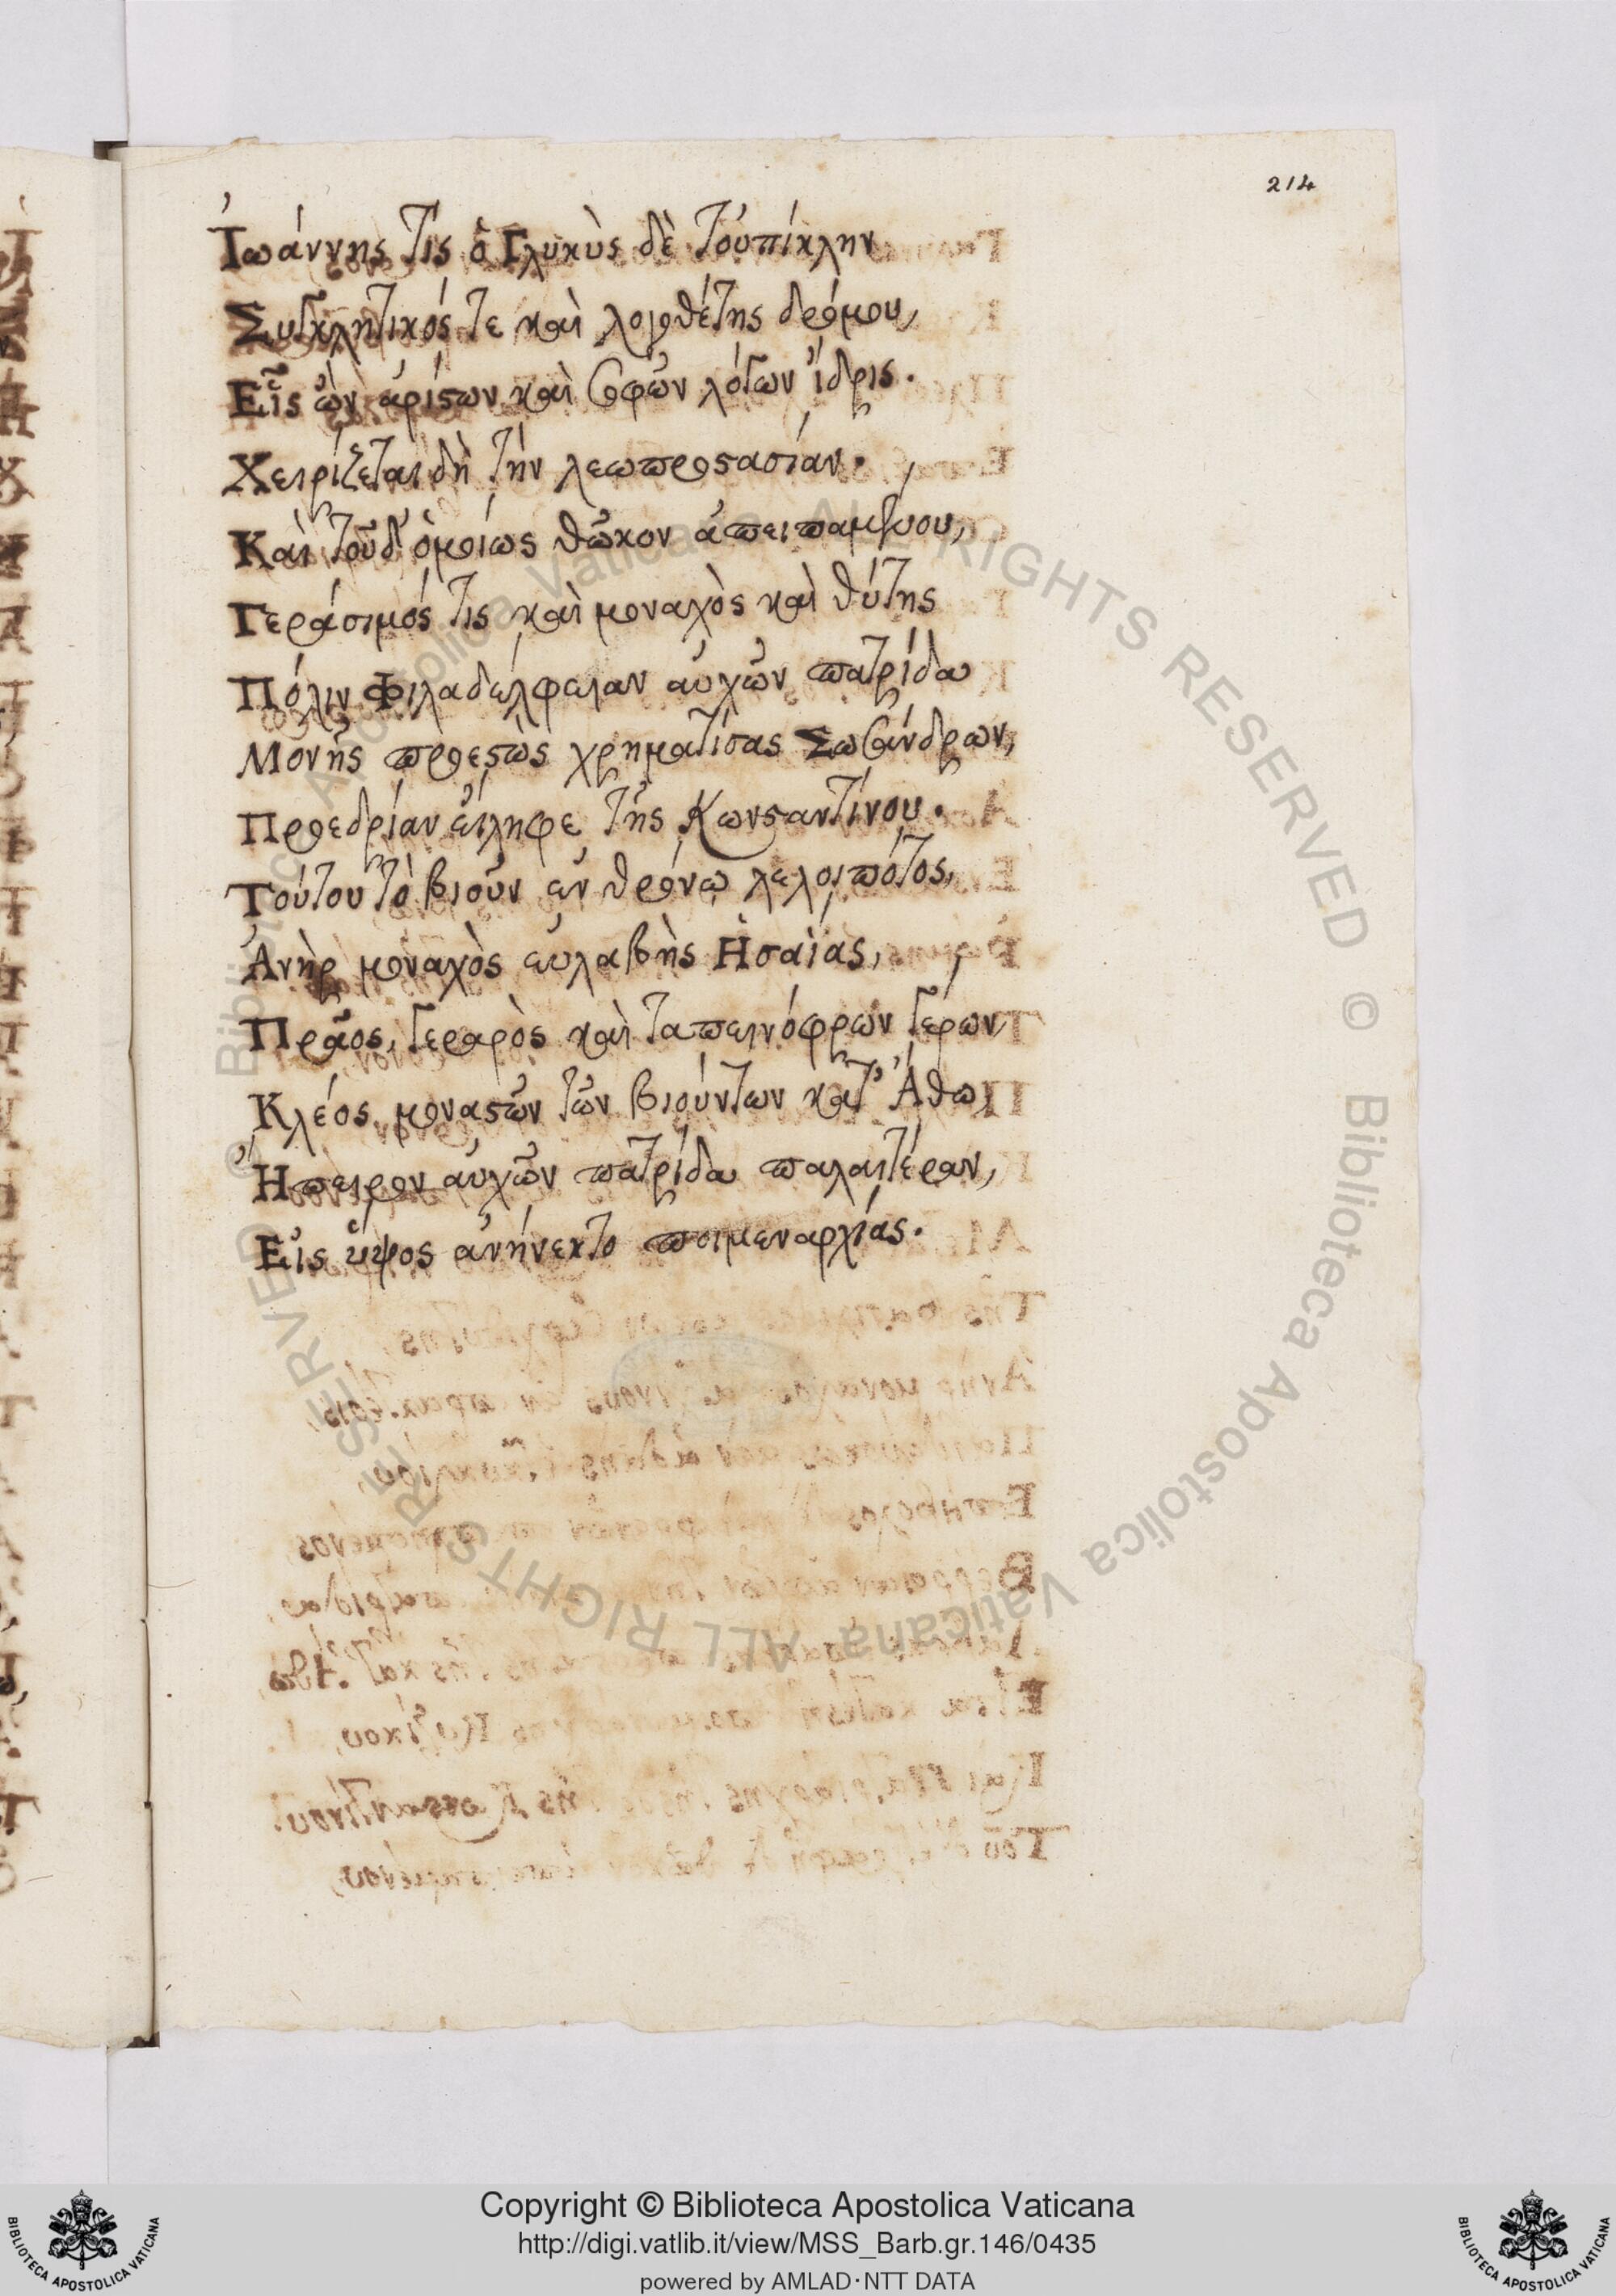 214
Ἰωάννης τίς ὁ Γλυκὺς δὲ τοὐπίκλην
Συγκλητικός τε καὶ λογοθέτης δρόμου,
Εἷς ὢν ἀρίστων καὶ σοφῶν λόγων ἴδρις.
Χειρίζεται δὴ τὴν λεωπροστασίαν.
Καὶ τοῦδ' ὁμοίως θῶκον ἀπειπαμένου,
Γεράσιμός τις καὶ μοναχὸς καὶ θύτης
Πόλιν Φιλαδέλφειαν αὐχῶν πατρίδα
Μονῆς προεστὼς χρηματίσας Σωσάνδρων,
Προεδρίαν εἴληφε τῆς Κωνσταντίνου.
Τούτου τὸ βιοῦν ἐν θρόνῳ λελοιπότος,
Ἀνὴρ μοναχὸς εὐλαβὴς Ἠσαΐας,
Πρᾶος, γεραρὸς καὶ ταπεινόφρων γέρων
Κλέος μοναστῶν τῶν βιούντων κατ' Ἄθω
Ἤπειρον αὐχῶν πατρίδα παλαιτέραν,
Εἰς ὕψος ἀνήνεκτο ποιμεναρχίας.
© Biblioteca Apostolica Vaticana ALL RIGHTS RESERVED © Biblioteca Apostolica Vaticana ALL RIGHTS RESERVED
Copyright © Biblioteca Apostolica Vaticana
http://digi.vatlib.it/view/MSS_Barb.gr.146/0435
powered by AMLAD·NTT DATA
BIBLIOTECA APOSTOLICA VATICANA
BIBLIOTECA APOSTOLICA VATICANA